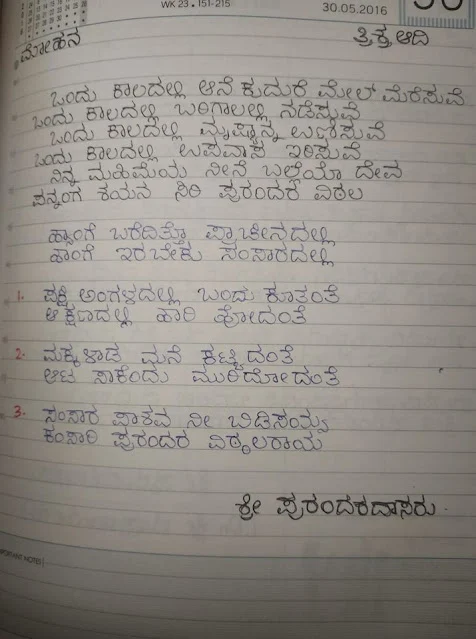 WK 23 • 151-215
30.05.2016
ಮೋಹನ
ತ್ರಿಶ್ರ ಆದಿ
ಒಂದು ಕಾಲದಲ್ಲಿ ಆನೆ ಕುದುರೆ ಮೇಲ್ ಮೆರೆಸುವೆ
ಒಂದು ಕಾಲದಲ್ಲಿ ಬರಿಗಾಲಲ್ಲಿ ನಡೆಸುವೆ
ಒಂದು ಕಾಲದಲ್ಲಿ ಮೃಷ್ಟಾನ್ನ ಉಣಿಸುವೆ
ಒಂದು ಕಾಲದಲ್ಲಿ ಉಪವಾಸ ಇರಿಸುವೆ
ನಿನ್ನ ಮಹಿಮೆಯ ನೀನೆ ಬಲ್ಲೆಯಾ ದೇವ
ಪನ್ನಂಗ ಶಯನ ಸಿರಿ ಪುರಂದರ ವಿಠಲ
ಹ್ಯಾಂಗೆ ಬರೆದಿತ್ತೊ ಪ್ರಾಚೀನದಲ್ಲಿ
ಹಾಂಗೆ ಇರಬೇಕು ಸಂಸಾರದಲ್ಲಿ
1. ಪಕ್ಷಿ ಅಂಗಳದಲ್ಲಿ ಬಂದು ಕೂತಂತೆ
ಆ ಕ್ಷಣದಲ್ಲಿ ಹಾರಿ ಹೋದಂತೆ
2. ಮಕ್ಕಳಾಡಿ ಮನೆ ಕಟ್ಟಿದಂತೆ
ಆಟ ಸಾಕೆಂದು ಮುರಿದೋದಂತೆ
3. ಸಂಸಾರ ಪಾಶವ ನೀ ಬಿಡಿಸಯ್ಯ
ಕಂಸಾರಿ ಪುರಂದರ ವಿಠ್ಠಲರಾಯ
ಶ್ರೀ ಪುರಂದರದಾಸರು.
IMPORTANT NOTES